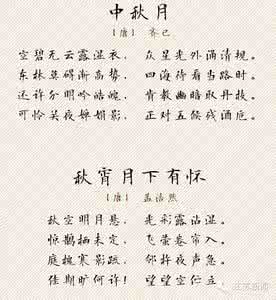 中秋月
[唐] 齐己
空碧无云露湿衣，众星光外涌清规。
东林莫碍渐高势，四海待看当路时。
还许分明吟皓魄，肯教幽暗取丹枝。
可怜关夜婵娟影，正对五侯残酒卮。
秋宵月下有怀
[唐] 孟浩然
秋空明月悬，光彩露沾湿。
惊鹊栖未定，飞萤卷帘入。
庭槐寒影疏，邻杵夜声急。
佳期旷何许！望望空伫立。